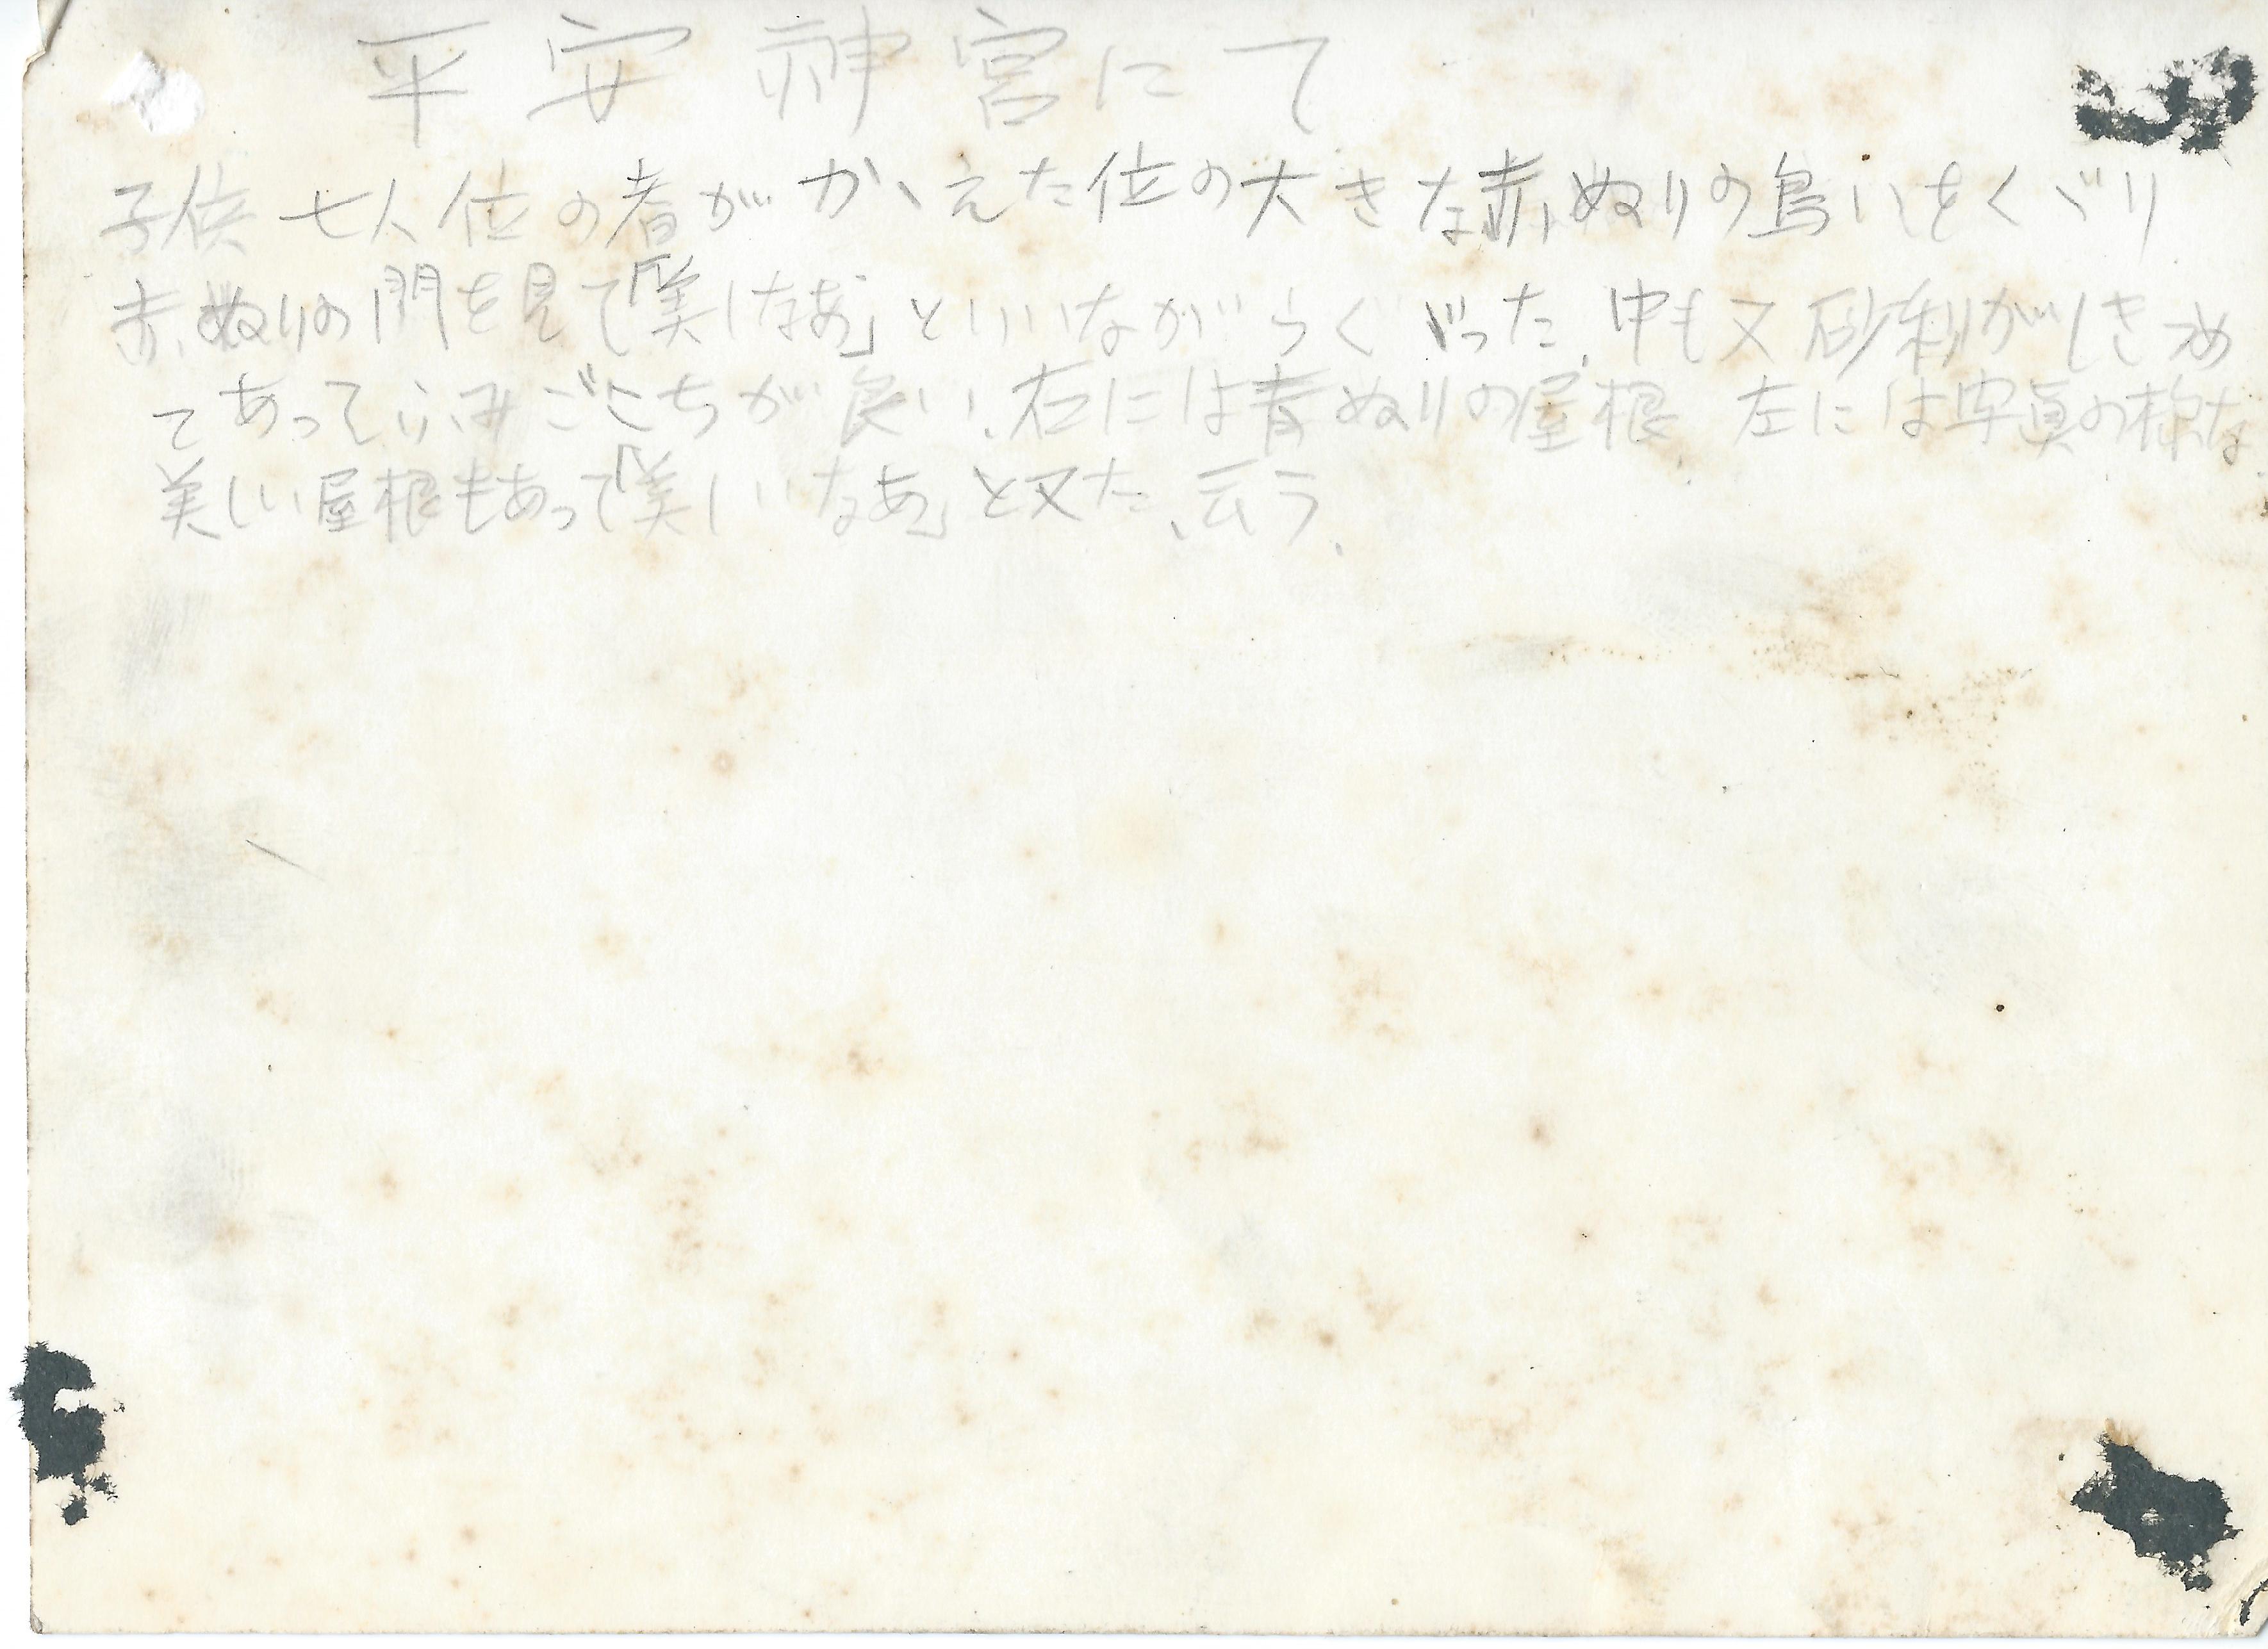 平安神宮にて
子供七人位の者がかゝえた位の大きな赤ぬりの鳥いをくぐり
赤ぬりの門を見て「美しなあ」といいながらくぐった、中も又砂利がしきつめ
てあってふみごこちが良い、右には青ぬりの屋根、左には写真の様な
美しい屋根もあって「美しいなあ」と又た、云う、